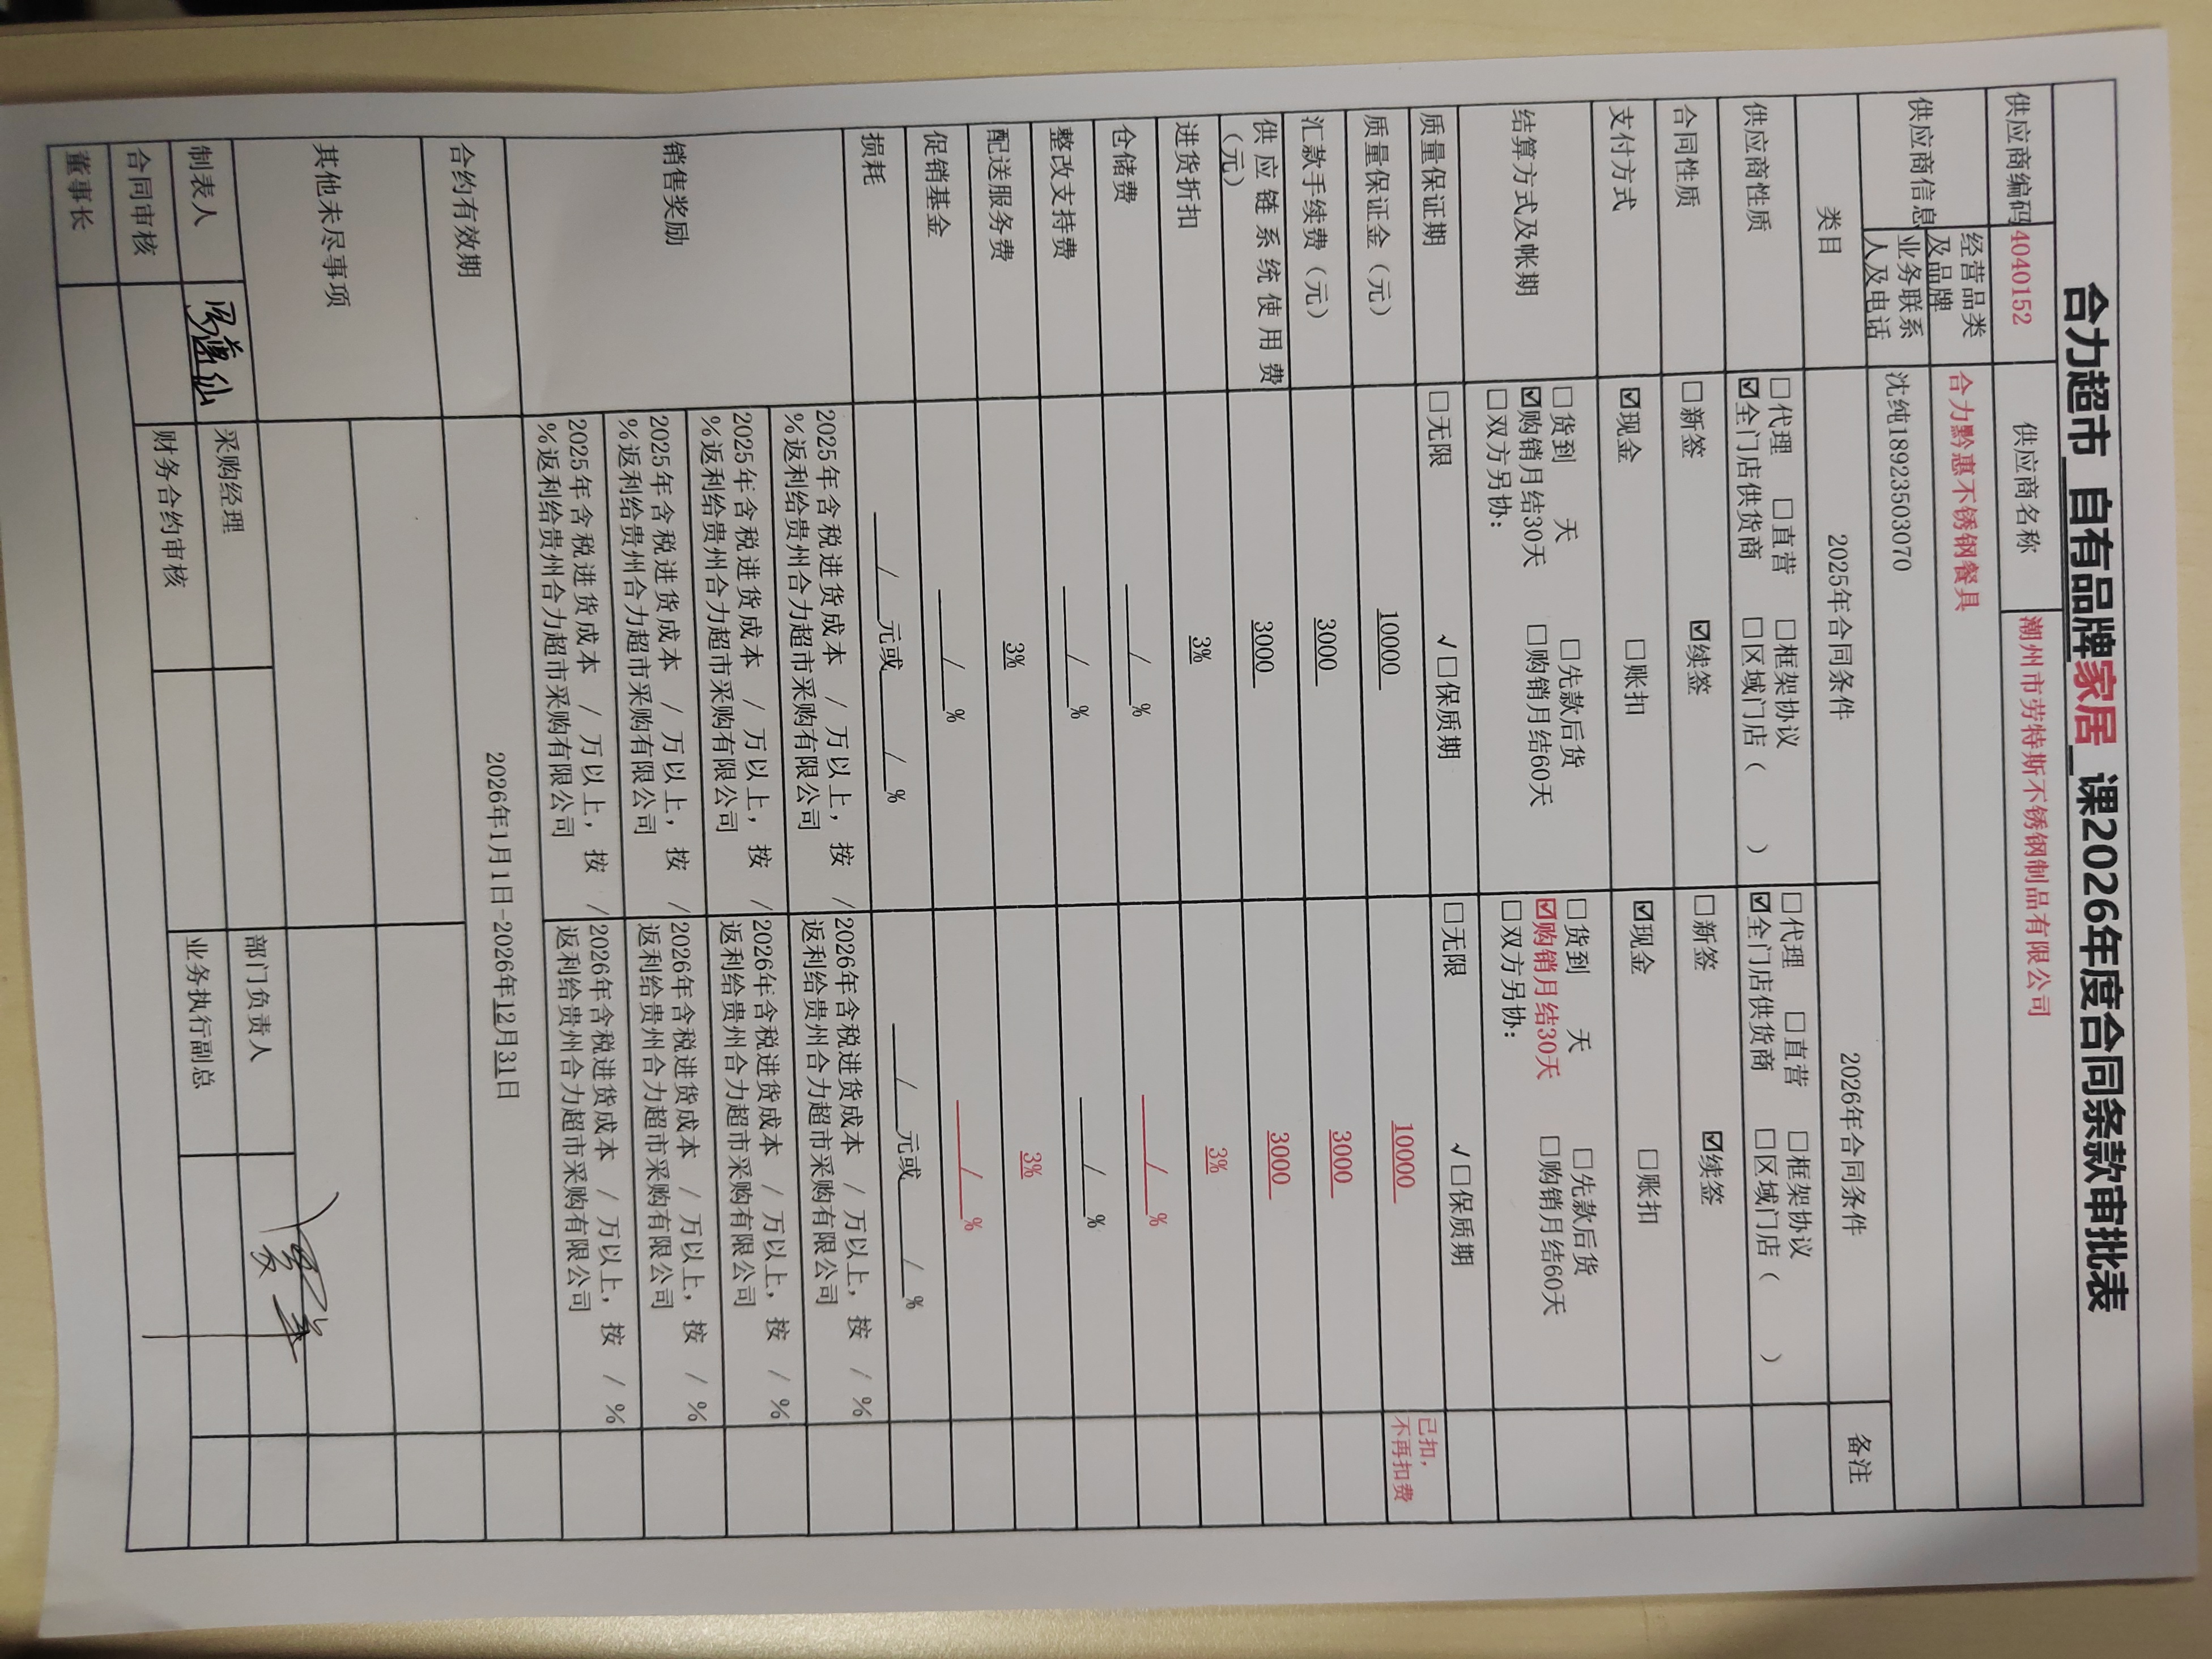 合力超市 自有品牌家居 课2026年度合同条款审批表
供应商编码 4040152 供应商名称 潮州市劳特斯不锈钢制品有限公司
供应商信息 经营品类及品牌 合力黔惠不锈钢餐具
业务联系人及电话 沈纯18923503070
类目 2025年合同条件 2026年合同条件 备注
供应商性质 □代理 □直营 □框架协议 □代理 □直营 □框架协议
☑全门店供货商 □区域门店（ ） ☑全门店供货商 □区域门店（ ）
合同性质 □新签 ☑续签 □新签 ☑续签
支付方式 ☑现金 □账扣 ☑现金 □账扣
结算方式及帐期 □货到 天 □先款后货 □货到 天 □先款后货
☑购销月结30天 □购销月结60天 ☑购销月结30天 □购销月结60天
□双方另协： □双方另协：
质量保证期 □无限 √□保质期 □无限 √□保质期
质量保证金（元） 10000 10000 已扣，不再扣费
汇款手续费（元） 3000 3000
供应链系统使用费（元） 3000 3000
进货折扣 3% 3%
仓储费 / % / %
整改支持费 / % / %
配送服务费 3% 3%
促销基金 / % / %
损耗 / 元或 / % / 元或 / %
销售奖励 2025年含税进货成本 / 万以上，按 / %返利给贵州合力超市采购有限公司 2026年含税进货成本 / 万以上，按 / %返利给贵州合力超市采购有限公司
2025年含税进货成本 / 万以上，按 / %返利给贵州合力超市采购有限公司 2026年含税进货成本 / 万以上，按 / %返利给贵州合力超市采购有限公司
2025年含税进货成本 / 万以上，按 / %返利给贵州合力超市采购有限公司 2026年含税进货成本 / 万以上，按 / %返利给贵州合力超市采购有限公司
2025年含税进货成本 / 万以上，按 / %返利给贵州合力超市采购有限公司 2026年含税进货成本 / 万以上，按 / %返利给贵州合力超市采购有限公司
合约有效期 2026年1月1日-2026年12月31日
其他未尽事项
制表人 采购经理 部门负责人
合同审核 财务合约审核 业务执行副总
董事长